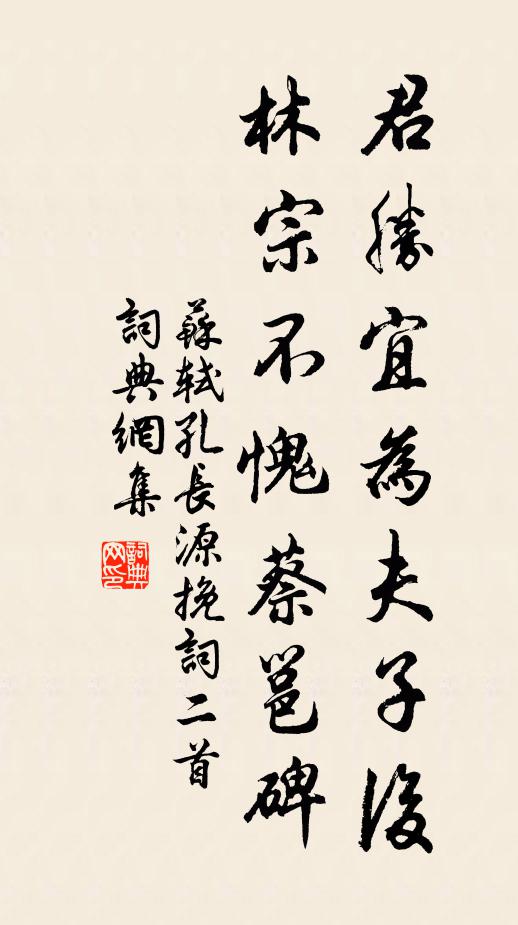 君勝宜為夫子後
林宗不愧蔡邕碑
蘇軾孔長源挽詞二首
詞典網集
詞典网印